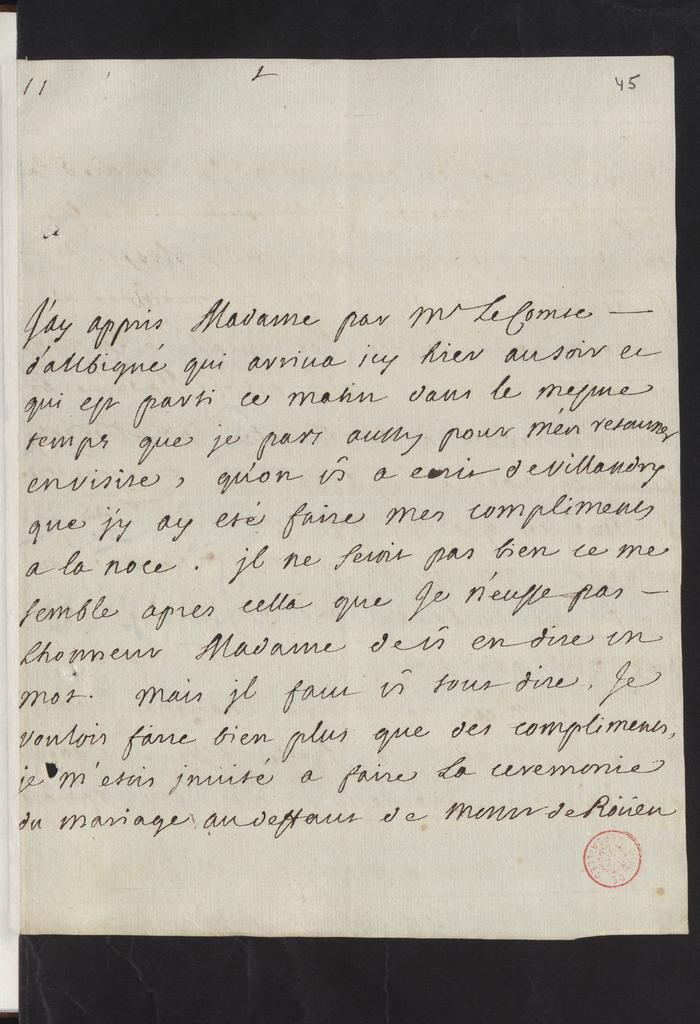 45
J'ay appris Madame par Mr Le Comte
d'aubigné qui arriva icy hier au soir et
qui est parti ce matin dans le mesme
temps que je pars aussy pour m'en retourner
en visite, qu'on vs a ecrit de Villandry
que j'y ay eté faire mes compliments
a la noce. jl ne seroit pas bien ce me
semble apres cella que Je n'eusse pas
Lhonneur Madame de vs en dire un
mot. Mais jl faut vs tout dire, Je
voulois faire bien plus que des compliments,
je m'etois jnvité a faire La ceremonie
du mariage au deffaut de Monsr de Roüen